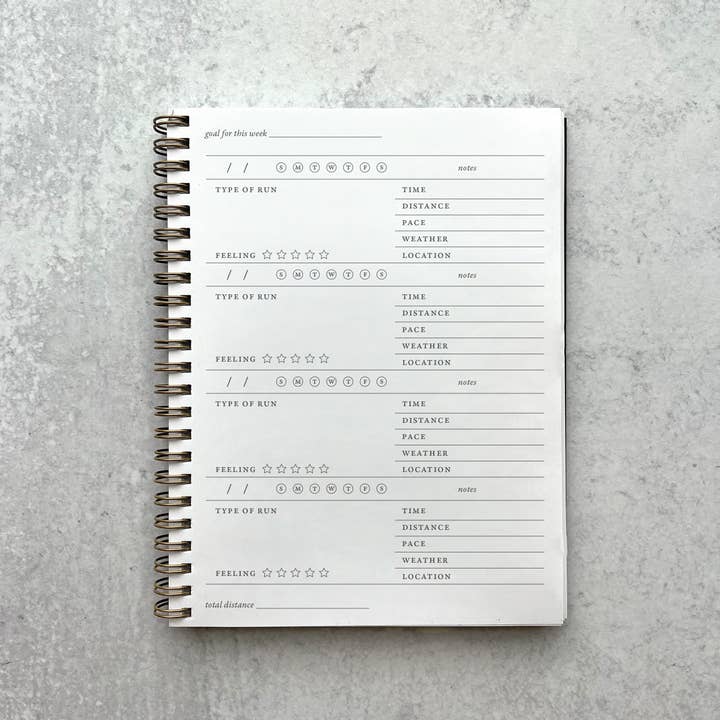 goal for this week
/ / S M T W T F S notes
TYPE OF RUN TIME
DISTANCE
PACE
WEATHER
FEELING LOCATION
/ / S M T W T F S notes
TYPE OF RUN TIME
DISTANCE
PACE
WEATHER
FEELING LOCATION
/ / S M T W T F S notes
TYPE OF RUN TIME
DISTANCE
PACE
WEATHER
FEELING LOCATION
/ / S M T W T F S notes
TYPE OF RUN TIME
DISTANCE
PACE
WEATHER
FEELING LOCATION
total distance